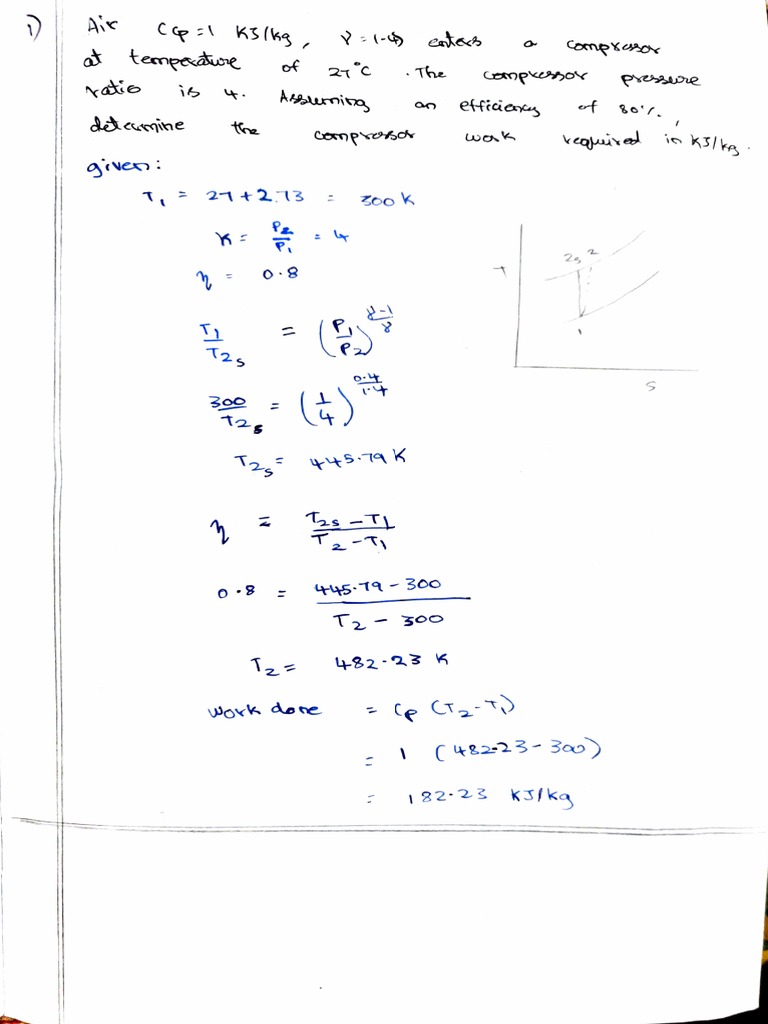 1) Air (Cp=1 KJ/kg, γ=1.4) enters a compressor
at temperature of 27°C. The compressor pressure
ratio is 4. Assuming an efficiency of 80%,
determine the compressor work required in KJ/kg.
given:
T1 = 27+2.73 = 300 K
K = P2/P1 = 4
η = 0.8
T1/T2s = (P1/P2)^(γ-1/γ)
300/T2s = (1/4)^(0.4/1.4)
T2s = 445.79 K
η = T2s-T1/T2-T1
0.8 = 445.79-300/T2-300
T2 = 482.23 K
Work done = Cp (T2-T1)
= 1 (482.23-300)
= 182.23 KJ/kg
T
2s 2
1
S